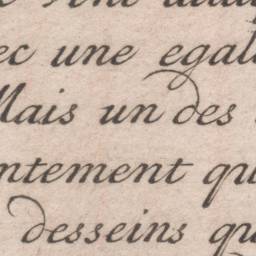 ec une egal
Mais un des
ntement qu
desseins qu